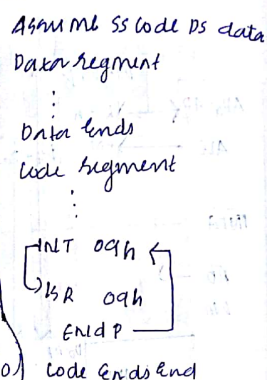 Assume SS code DS data
Data segment
⋮
Data Ends
Code segment
⋮
INT 09h
ISR 09h
ENdP
Code Ends End